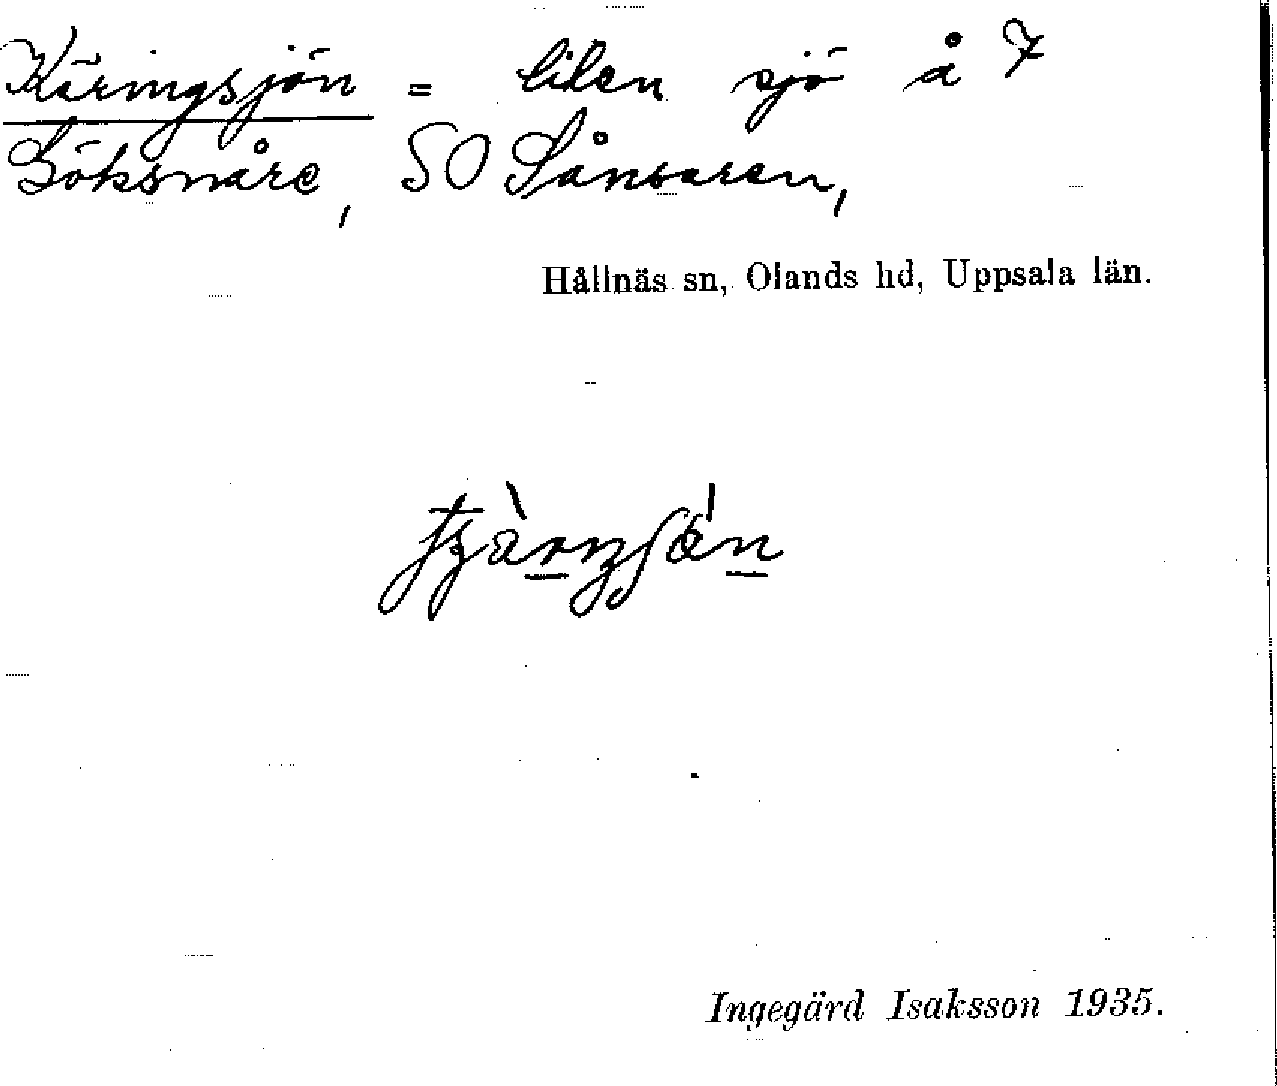 Käringsjön = liten sjö å 7
Böksnåre, SO Sånsaren,
Hållnäs sn, Olands hd, Uppsala län.
Ingegärd Isaksson 1935.